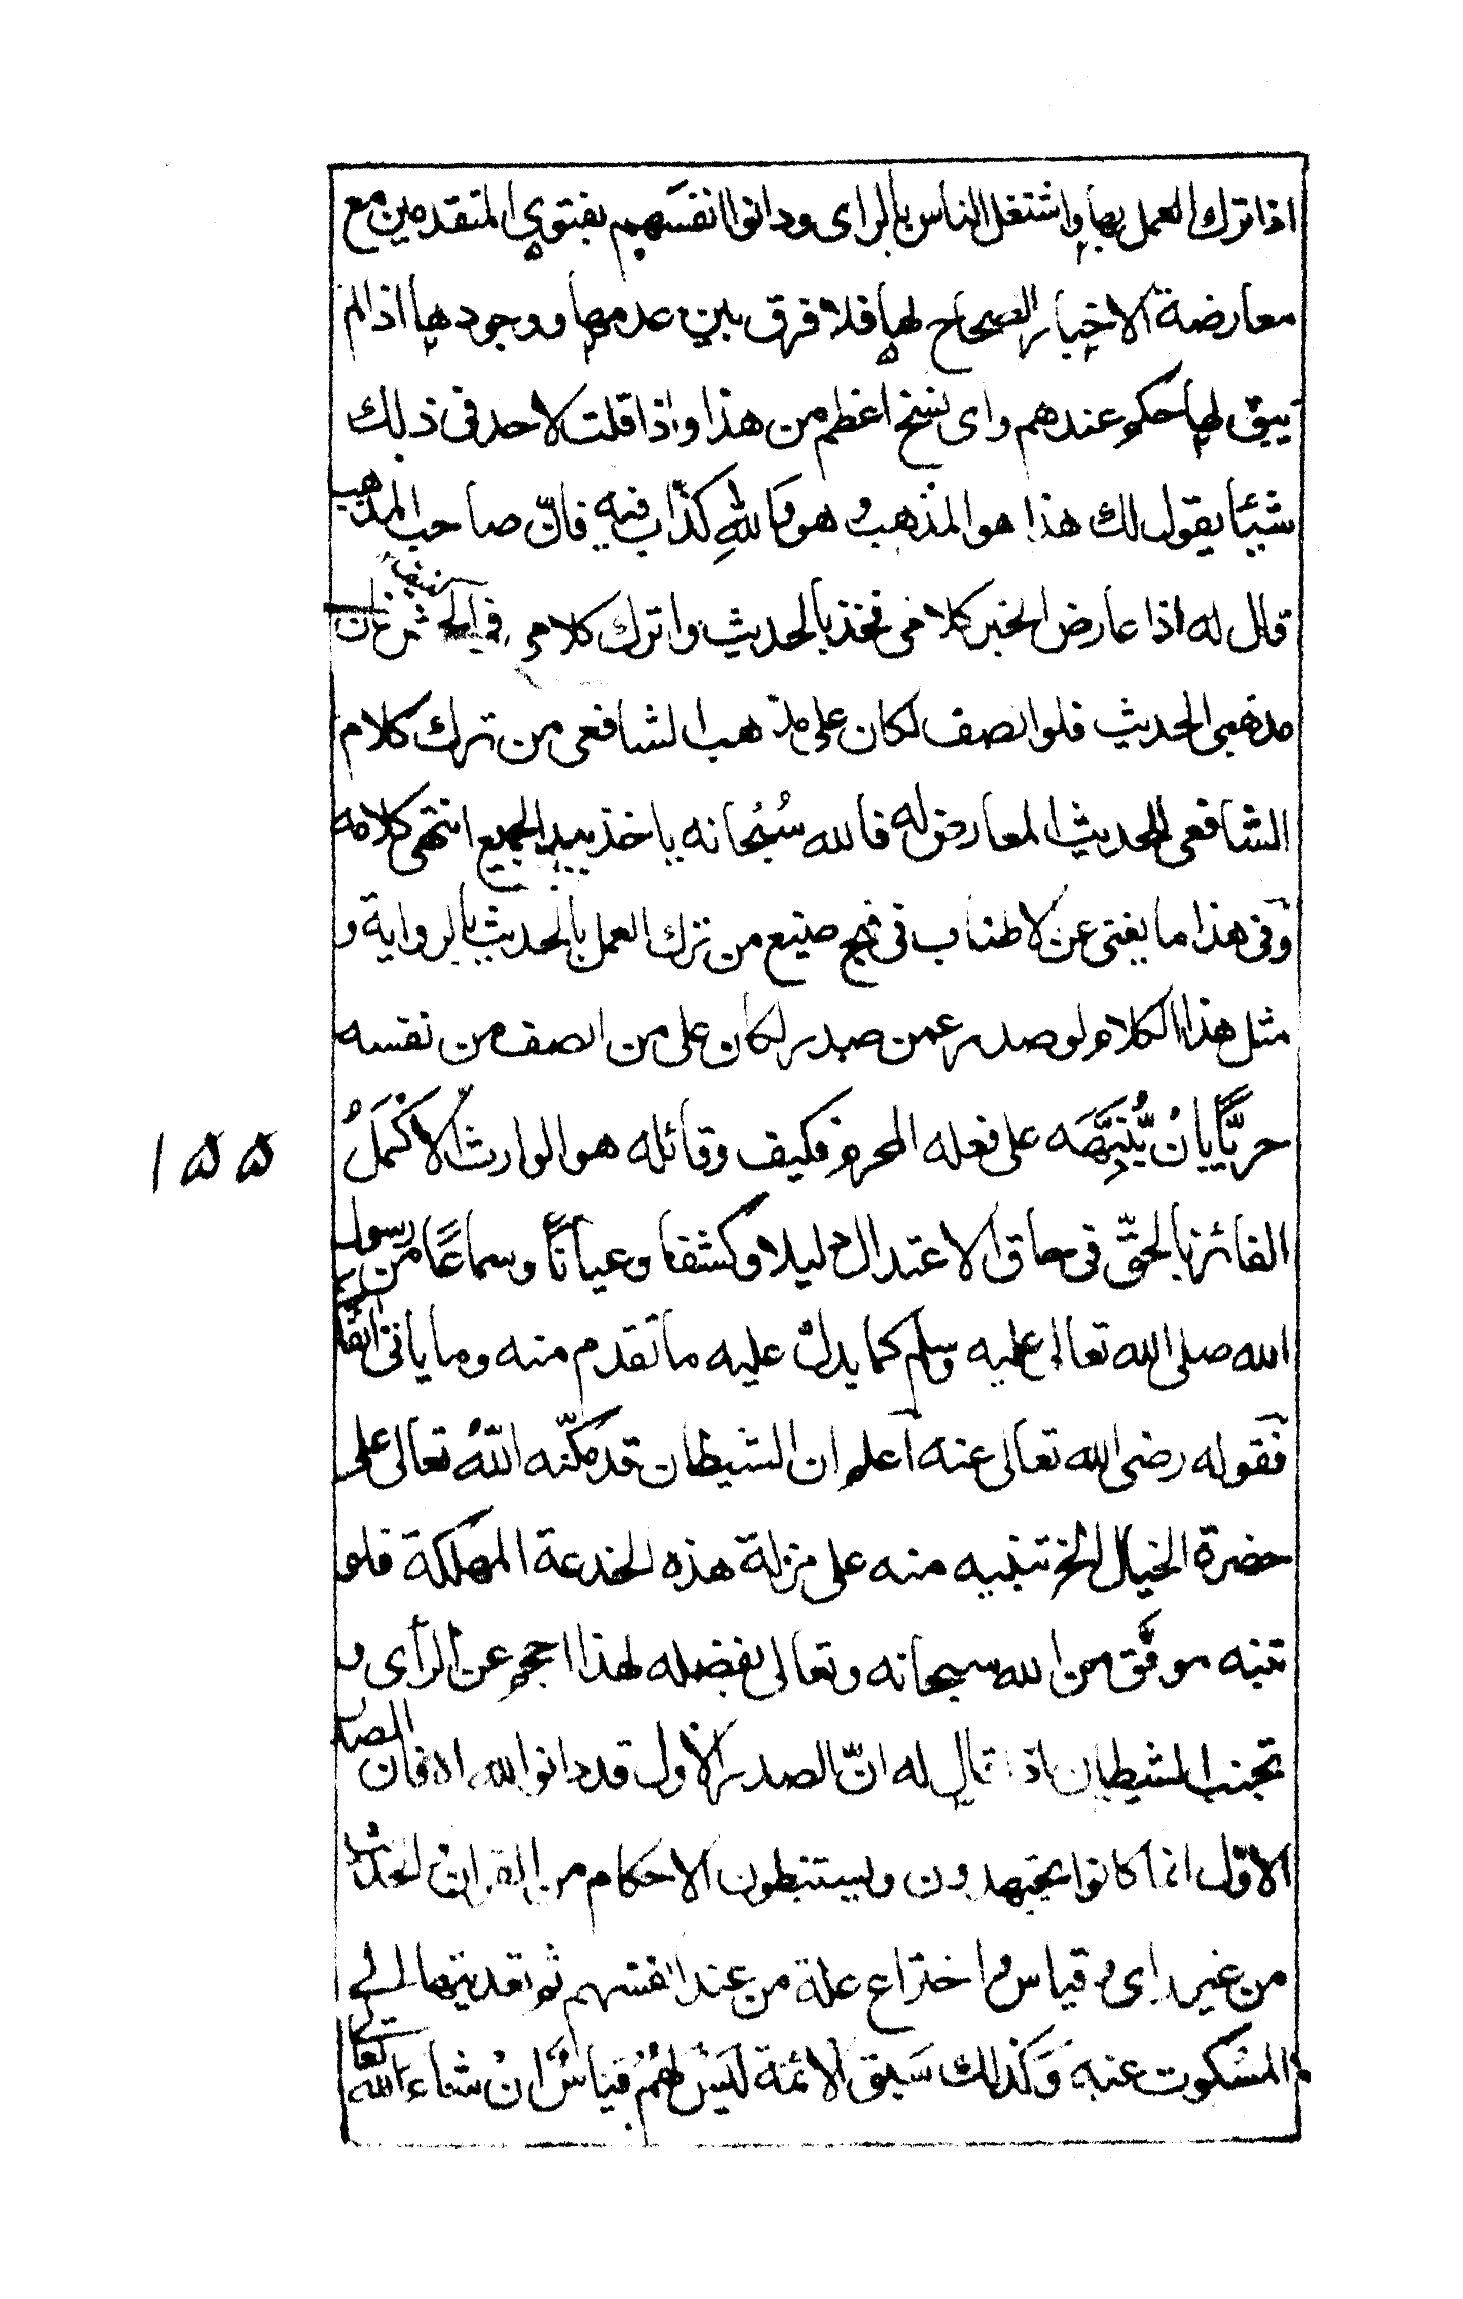 اذا ترك العمل بها واشتغل الناس بالراى ودانوا انفسهم بفتوى المتقدمين مع
معارضة الاخبار الصحاح لها فلا فرق بين عدمها ووجودها اذا لم
يبق لها حكم عندهم واى نسخ اعظم من هذا واذا قلت لاحد فى ذلك
شيئا يقول لك هذا هو المذهب و هو والله كذاب فيه فان صاحب المذهب
قال له اذا عارض الخبر كلامى فخذ بالحديث واترك كلامى فى
مذهبى الحديث فلو انصف لكان على مذهب الشافعى من ترك كلام
الشافعى للحديث المعارض له فالله سُبْحانه ياخذ بيد الجميع انتهى كلامه
وفى هذا ما يغنى عن الاطناب فى صنيع من ترك العمل بالحديث بالرواية و
مثل هذا الكلام لو صدر عمن صدر لكان على من انصف من نفسه
حريًّا بانْ يُّنَبِّهَه على فعله المحرم فكيف وقائله هو الوارث الاكْمَلُ
الفائز بالحقّ فى حاق الاعتدال دليلا وكشفا وعيانًا وسماعًا من رسول
الله صلى الله تعالى عليه وسلم كما يدل عليه ما تقدم منه وما ياتى انفا
فقوله رضى الله تعالى عنه اعلم ان الشيطان قد مكّنه اللهُ تعالى على
حضرة الخيال الخ تنبيه منه على مزلة هذه الخدعة المهلكة فلو
تنبه موفَّق من الله سبحانه وتعالى بفضله لهذا احجم عن الرأى و
تجنب الشيطان اذا قال له انّ الصدر الاول قد دانوا الله اه فان الصدر
الاوّل انما كانوا يجتهدون ويستنبطون الاحكام من القران الحديث
من غير راى و قياس و اختراع علة من عند انفسهم ثم تعديتها الى
المسكوت عنه وَكذلك سَبق الائمة لَيْسَ لهُمْ قياسٌ انْ شاء الله تعالى
١٥٥